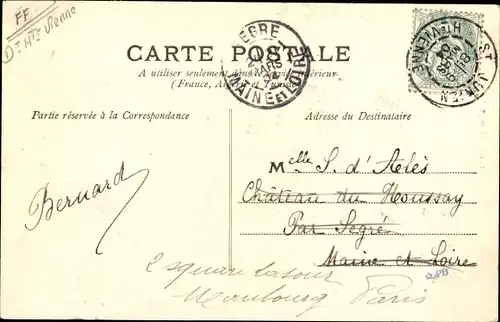 FF
Dt Hte Vienne
CARTE POSTALE
A utiliser seulement dans le
(France, Algérie et Tunisie)
SEGRÉ
MAINE ET LOIRE
ST JUNIEN
HTE VIENNE
Partie réservée à la Correspondance
Adresse du Destinataire
Bernard
Melle S. d'Aelès
Château du Houssay
Par Segré
Maine et Loire
2 square Latour
Maubourg Paris